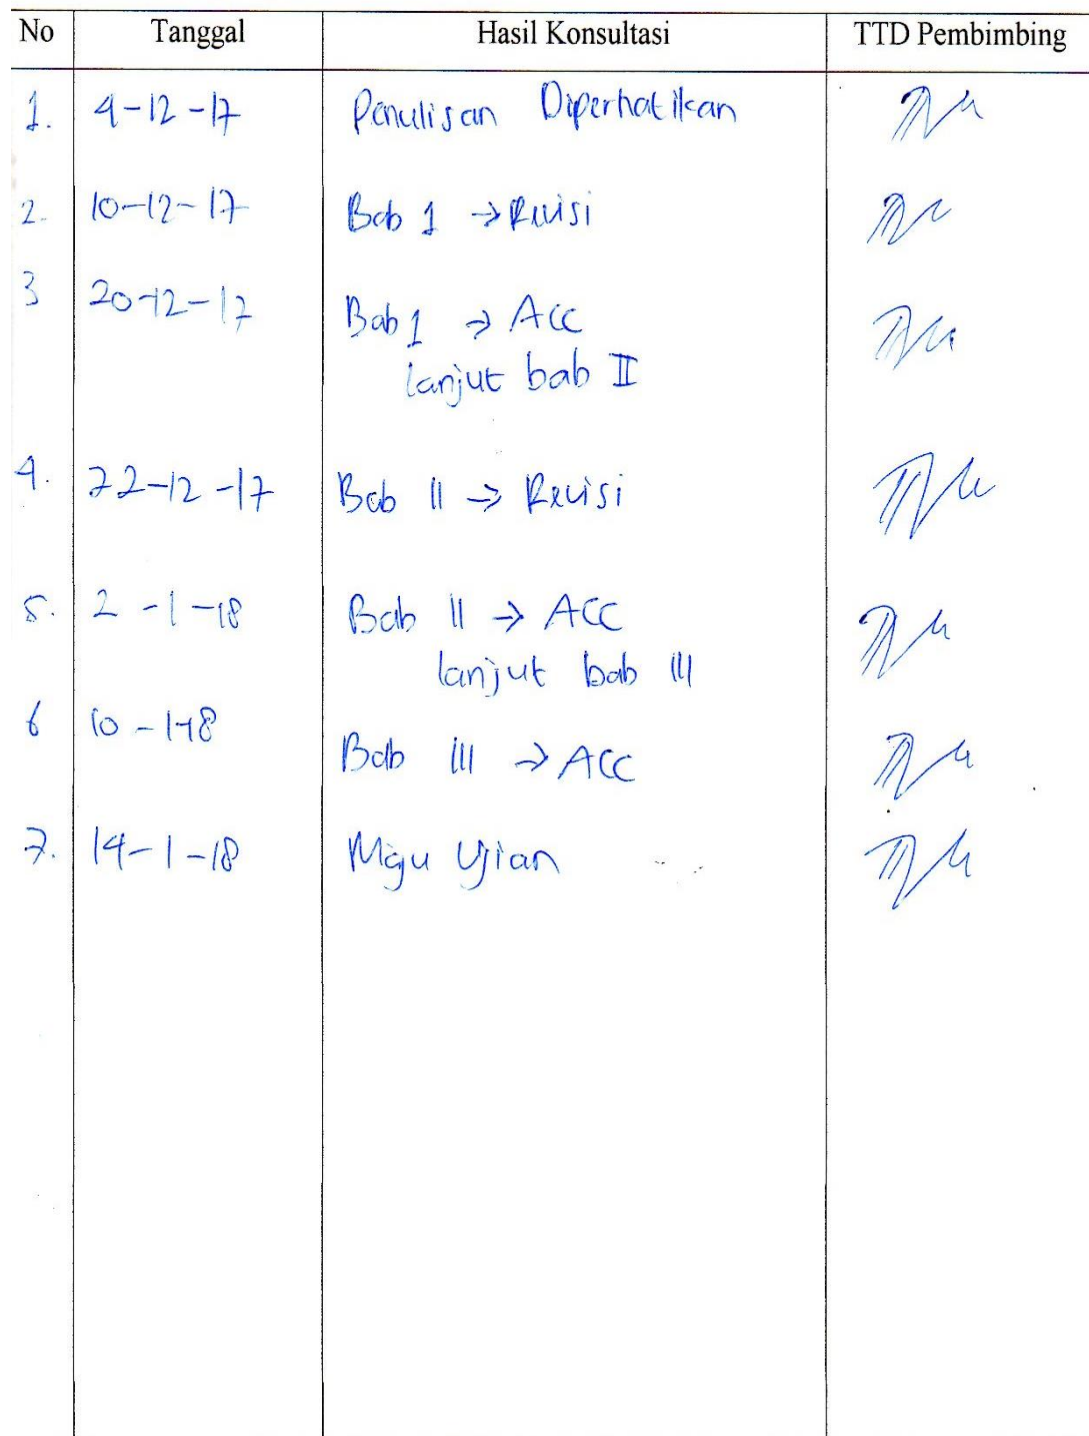 No Tanggal Hasil Konsultasi TTD Pembimbing
1. 4-12-17 Penulisan Diperhatikan
2. 10-12-17 Bab 1 → Revisi
3 20-12-17
Bab 1 → ACC
lanjut bab II
4. 22-12-17 Bab II → Revisi
5. 2-1-18 Bab II → ACC
lanjut bab III
6 10-1-18
Bab III → ACC
7. 14-1-18 Maju Ujian